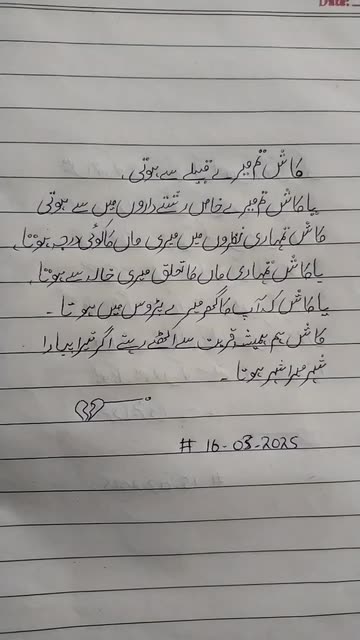 Date:
کاش تم میرے قبیلے سے ہوتی۔
یا کاش تم میرے خاص رشتے داروں میں سے ہوتی
کاش تمہاری نظروں میں میری ماں کا کوئی درجہ ہوتا۔
یا کاش تمہاری ماں کا تعلق میری خالہ سے ہوتا۔
یا کاش کہ آپ کا گھر میرے پڑوس میں ہوتا۔
کاش ہم ہمیشہ قربت سے اکھٹے رہتے اگر تیرا پیارا
شہر میرا شہر ہوتا۔
# 16-03-2025